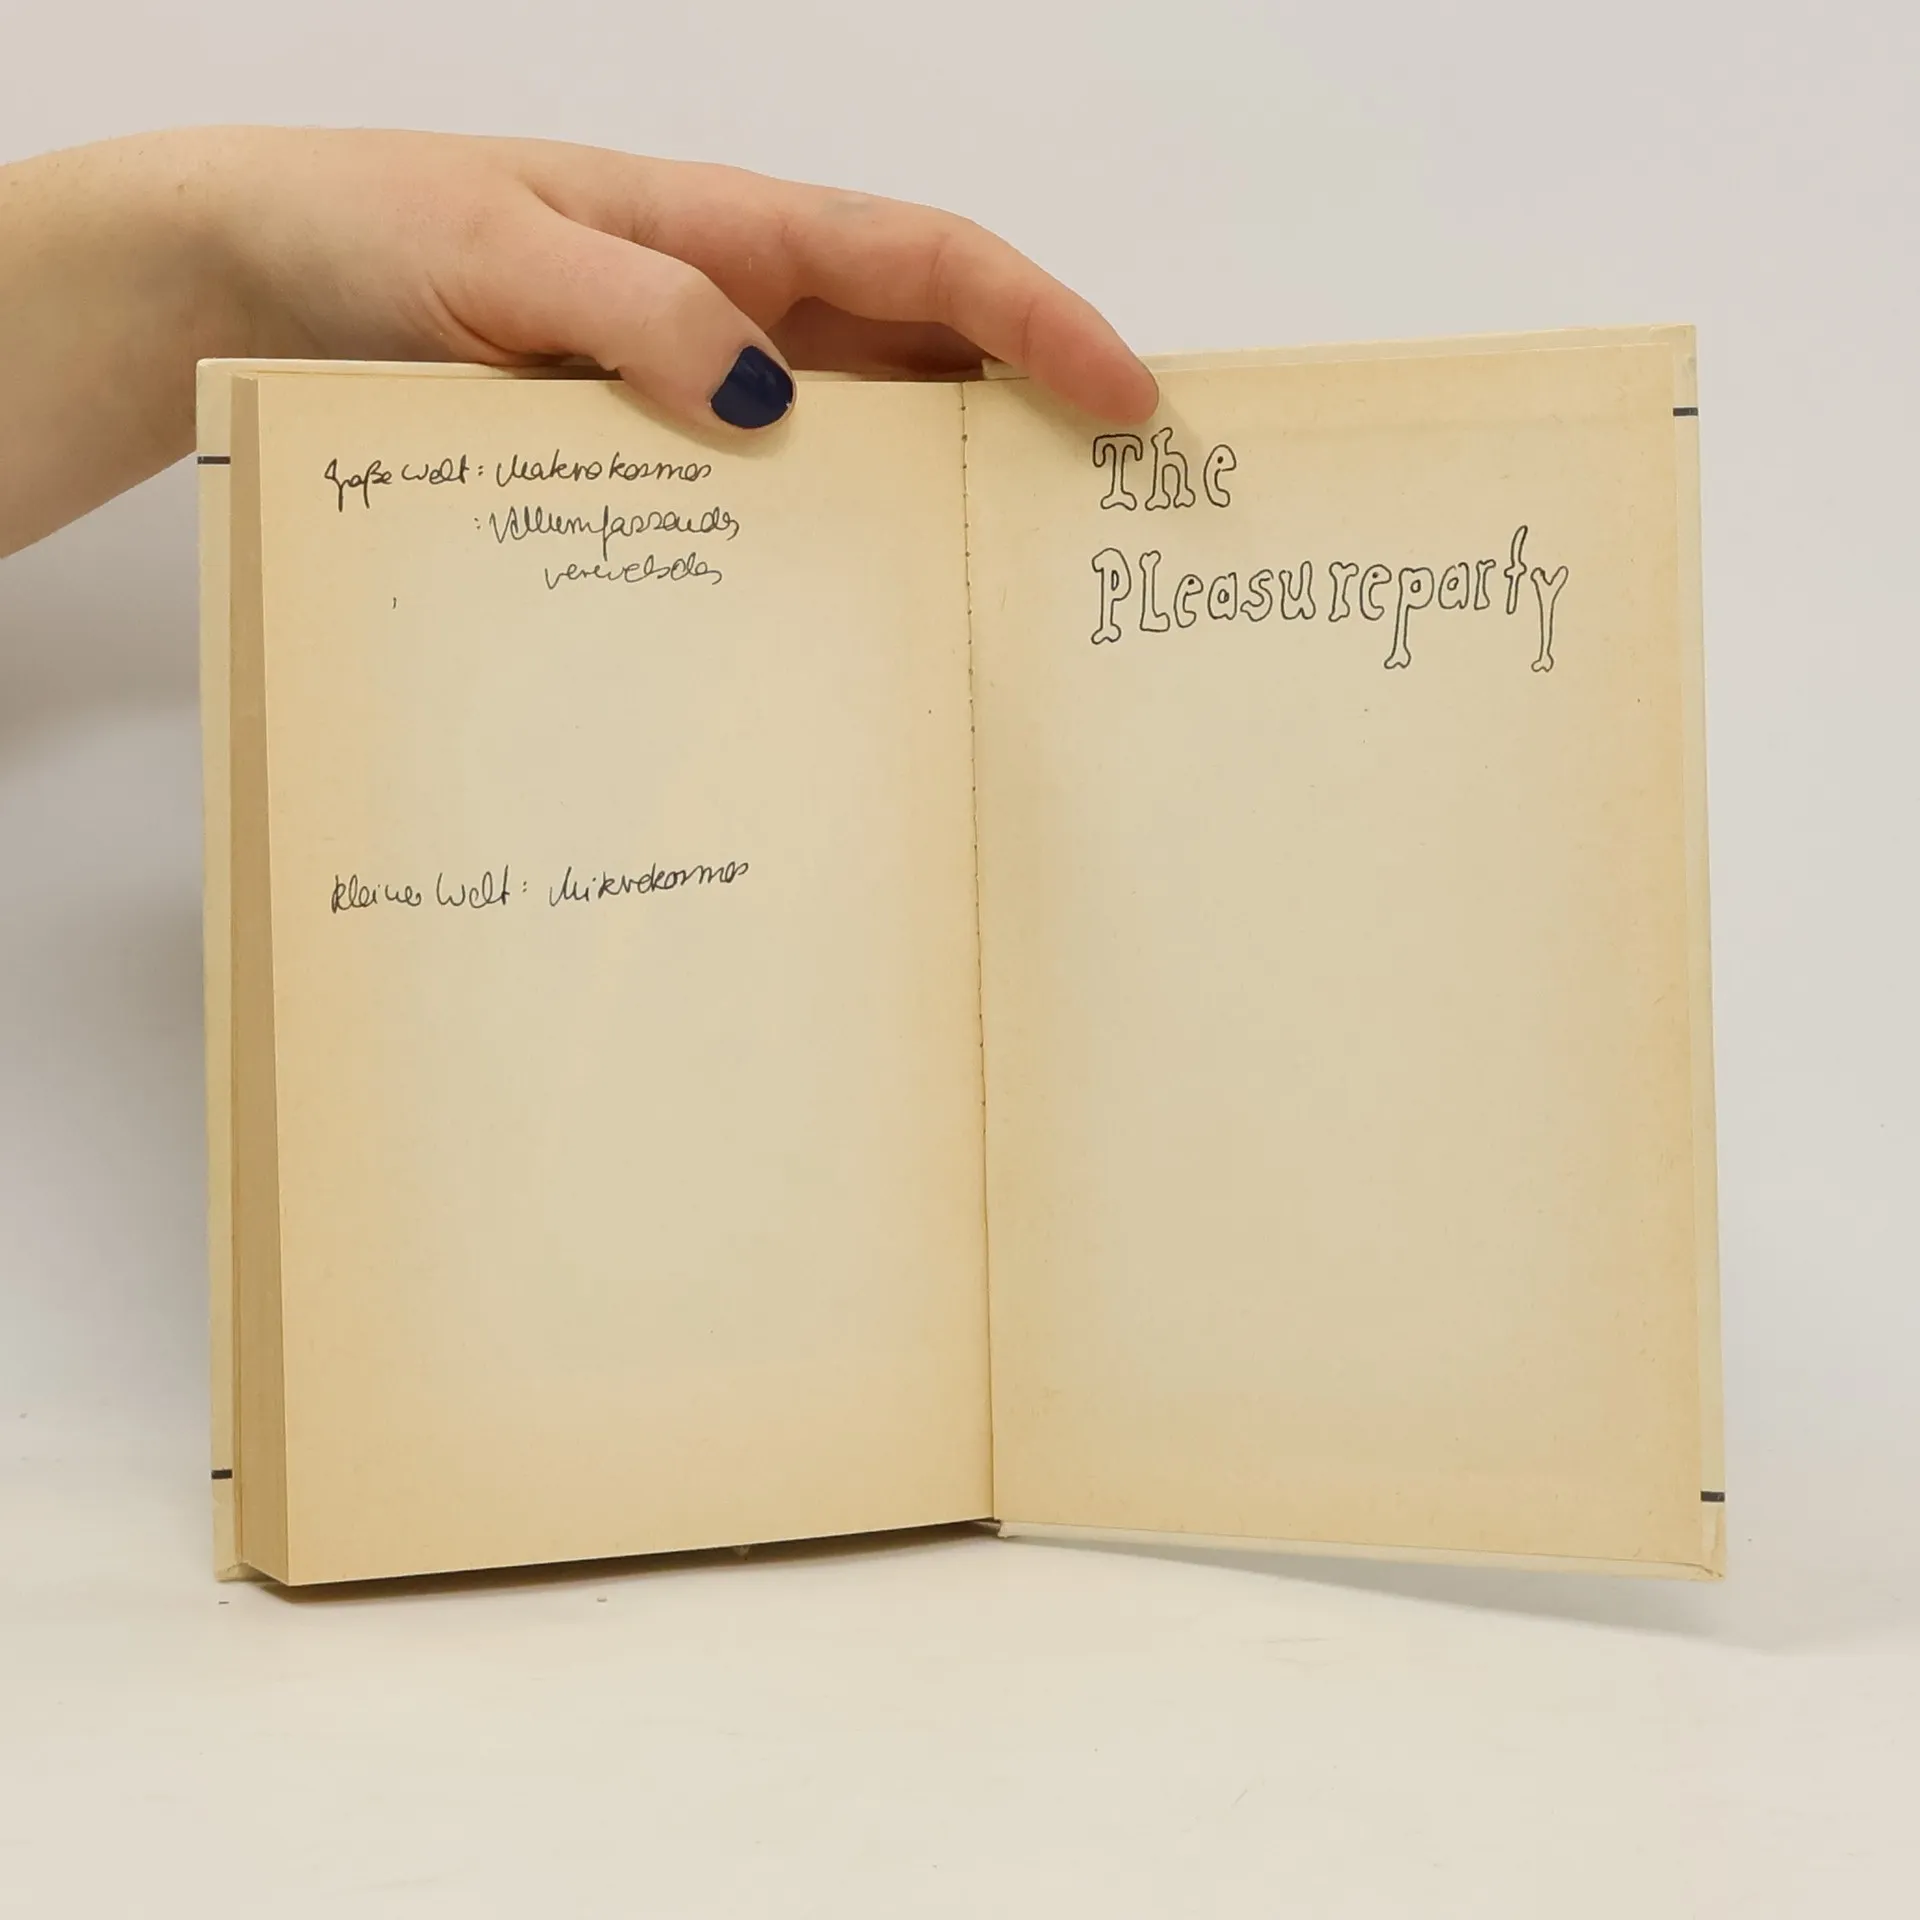 große Welt: Makrokosmos
: Allumfassendes
kleine Welt: Mikrokosmos
The
PLeasureparty